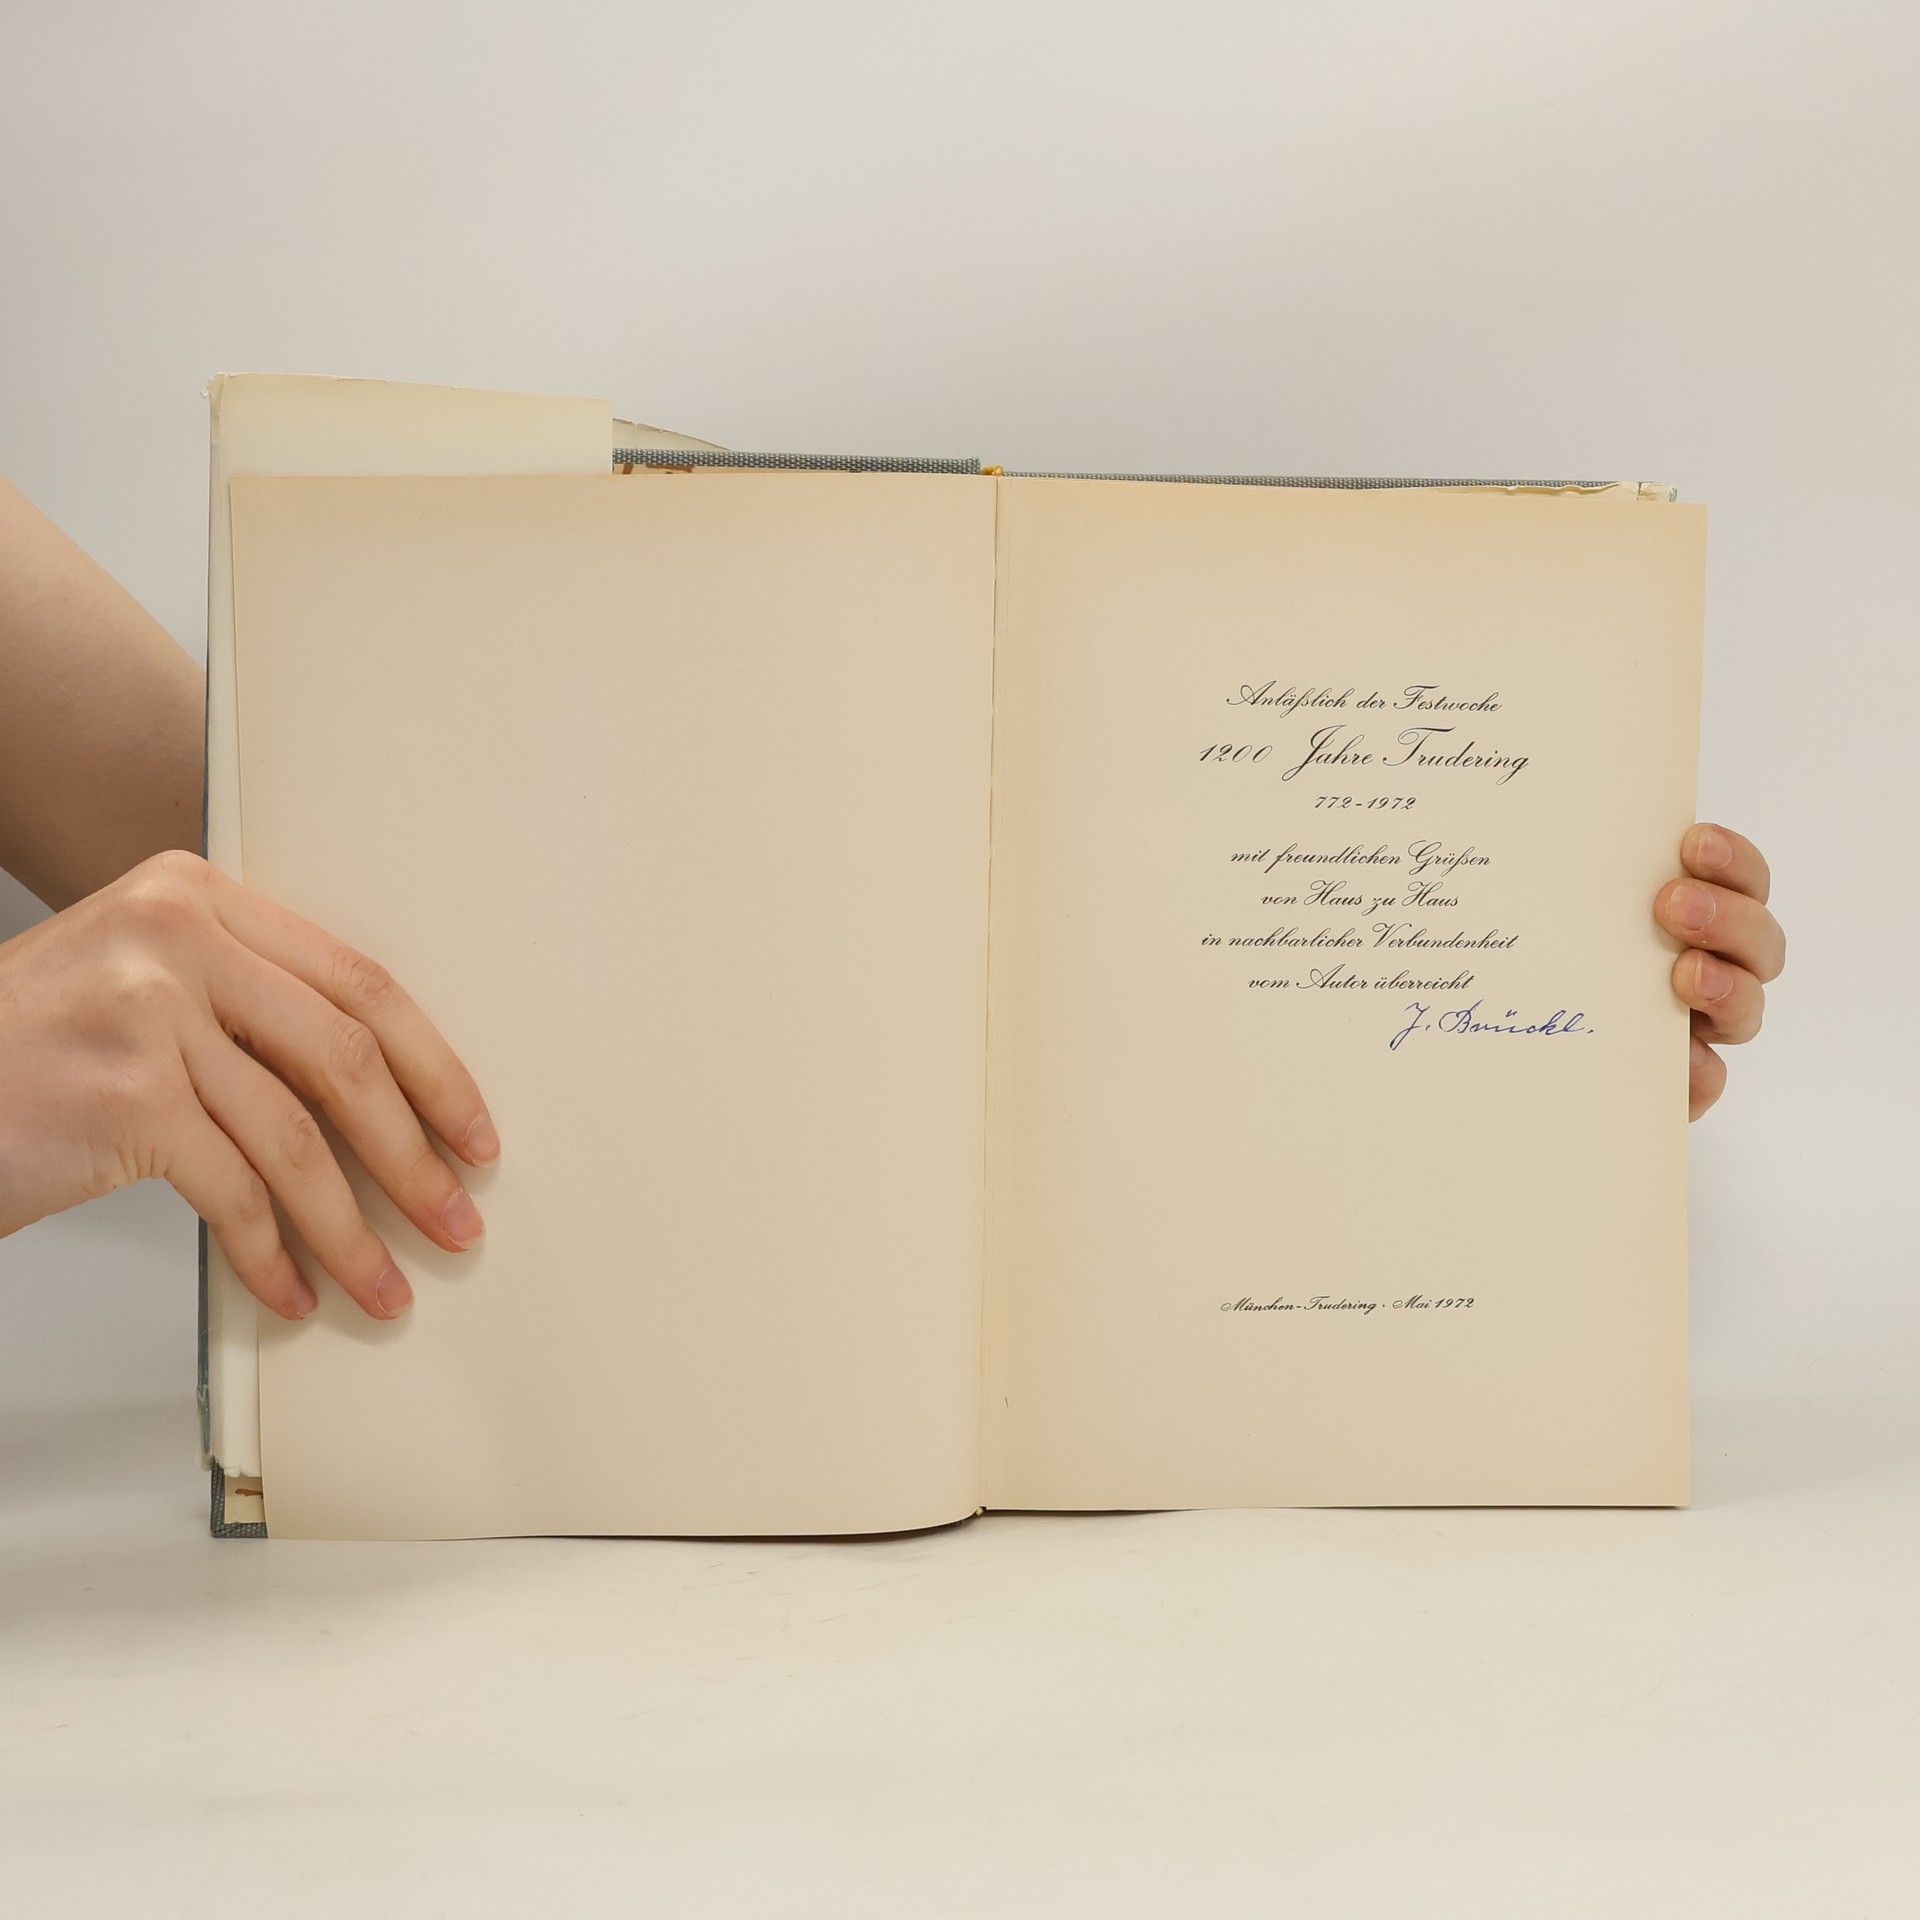 Anläßlich der Festwoche
1200 Jahre Trudering
772-1972
mit freundlichen Grüßen
von Haus zu Haus
in nachbarlicher Verbundenheit
vom Autor überreicht
J. Brückl.
München-Trudering · Mai 1972